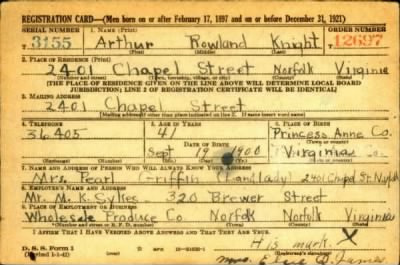 REGISTRATION CARD—(Men born on or after February 17, 1897 and on or before December 31, 1921)
SERIAL NUMBER 1. NAME (Print) ORDER NUMBER
T 3155 Arthur Rowland Knight T 12697
2. PLACE OF RESIDENCE (Print)
2401 Chapel Street Norfolk Virginia
(Number and street) (Town, township, village, or city) (County) (State)
[THE PLACE OF RESIDENCE GIVEN ON THE LINE ABOVE WILL DETERMINE LOCAL BOARD
JURISDICTION; LINE 2 OF REGISTRATION CERTIFICATE WILL BE IDENTICAL]
3. MAILING ADDRESS
2401 Chapel Street
[Mailing address if other than place indicated on line 2. If same insert word same]
4. TELEPHONE 5. AGE IN YEARS 6. PLACE OF BIRTH
36405 41 Princess Anne Co.
DATE OF BIRTH (Town or county)
Sept 19 1900 Virginia
(Exchange) (Number) (Mo.) (Day) (Yr.) (State or country)
7. NAME AND ADDRESS OF PERSON WHO WILL ALWAYS KNOW YOUR ADDRESS
Mrs. Pearl Griffin (Landlady) 2401 Chapel St.
8. EMPLOYER'S NAME AND ADDRESS
Mr. M. K. Sykes 320 Brewer Street
9. PLACE OF EMPLOYMENT OR BUSINESS
Wholesale Produce Co. Norfolk Norfolk Virginia
(Number and street or R. F. D. number) (Town) (County) (State)
I AFFIRM THAT I HAVE VERIFIED ABOVE ANSWERS AND THAT THEY ARE TRUE.
D. S. S. Form 1 His mark X
(Revised 1-1-42) (over) 16—21630-1
Mrs. James